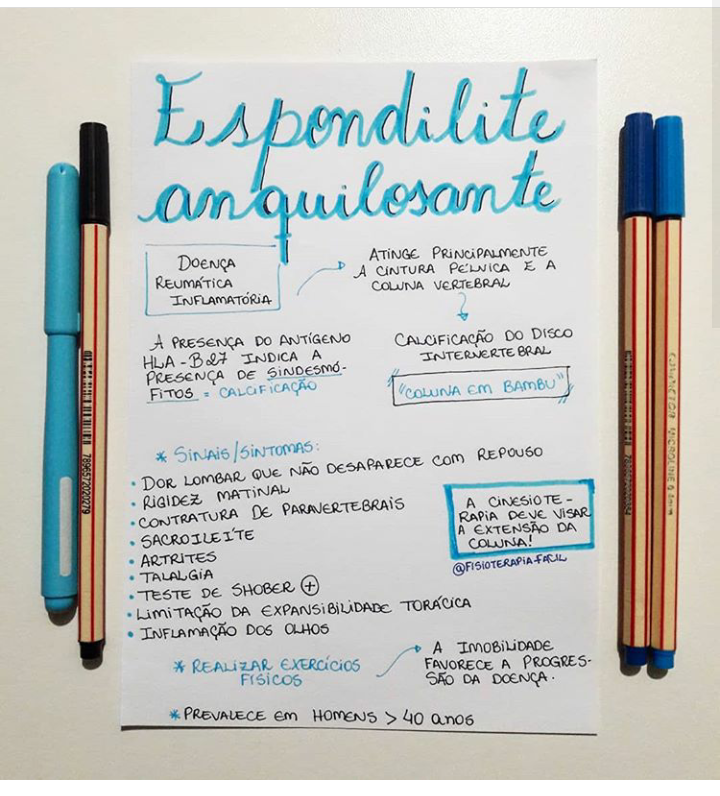 Espondilite
anquilosante
DOENÇA
REUMÁTICA
INFLAMATÓRIA
ATINGE PRINCIPALMENTE
A CINTURA PÉLVICA E A
COLUNA VERTEBRAL
A PRESENÇA DO ANTÍGENO
HLA-B27 INDICA A
PRESENÇA DE SINDESMÓ-
FITOS = CALCIFICAÇÃO
CALCIFICAÇÃO DO DISCO
INTERVERTEBRAL
"COLUNA EM BAMBU"
* SINAIS/SINTOMAS:
• DOR LOMBAR QUE NÃO DESAPARECE COM REPOUSO
• RIGIDEZ MATINAL
• CONTRATURA DE PARAVERTEBRAIS
• SACROILEÍTE
• ARTRITES
• TALALGIA
• TESTE DE SHOBER ⊕
• LIMITAÇÃO DA EXPANSIBILIDADE TORÁCICA
• INFLAMAÇÃO DOS OLHOS
A CINESIOTE-
RAPIA DEVE VISAR
A EXTENSÃO DA
COLUNA!
@FISIOTERAPIA.FACIL
* REALIZAR EXERCÍCIOS
FÍSICOS
A IMOBILIDADE
FAVORECE A PROGRES-
SÃO DA DOENÇA.
* PREVALECE EM HOMENS > 40 anos
7896572020279